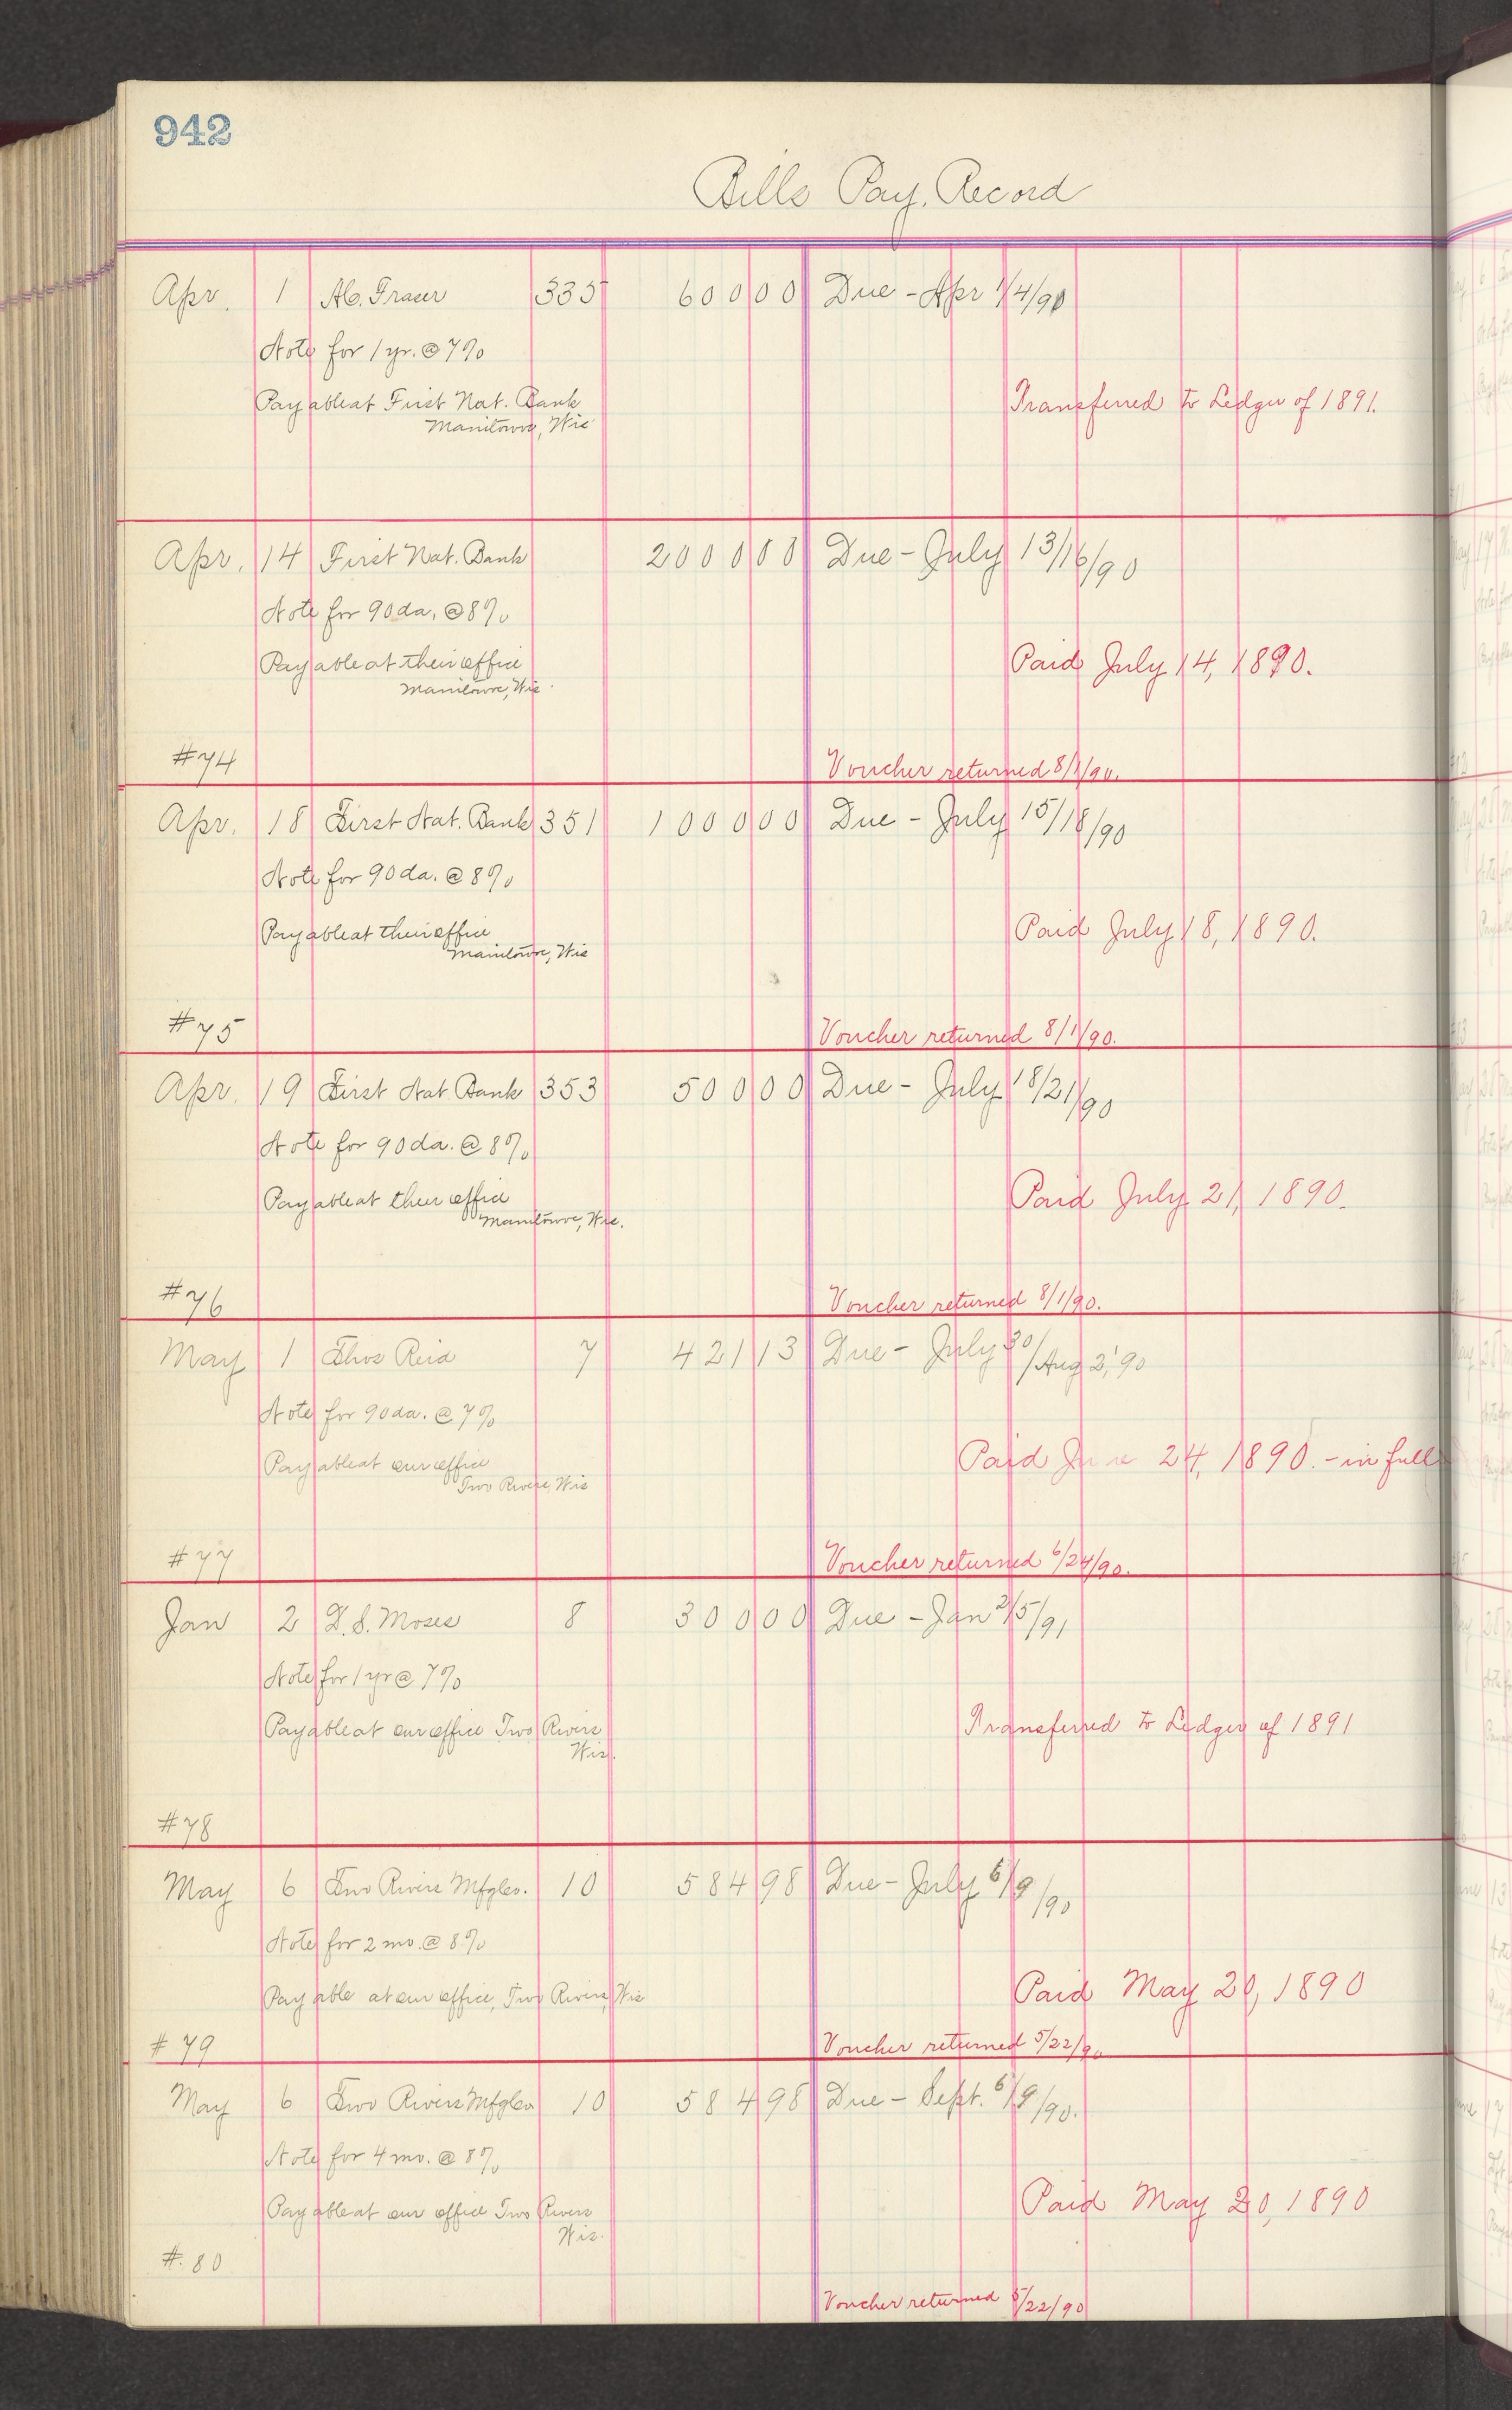 942
Bills Pay. Record
Apr. 1 Ab. Fraser 335 600 00 Due - Apr 1/4/90
Note for 1 yr. @ 7%
Payable at First Nat. Bank
Manitowoc, Wis
Transferred to Ledger of 1891.
Apr. 14 First Nat. Bank 2000 00 Due - July 13/16/90
Note for 90 da. @ 8%
Payable at their office
Manitowoc, Wis.
Paid July 14, 1890.
#74 Voucher returned 8/1/90.
Apr. 18 First Nat. Bank 351 1000 00 Due - July 15/18/90
Note for 90 da. @ 8%
Payable at their office
Manitowoc, Wis
Paid July 18, 1890.
#75 Voucher returned 8/1/90.
Apr. 19 First Nat. Bank 353 500 00 Due - July 18/21/90
Note for 90 da. @ 8%
Payable at their office
Manitowoc, Wis.
Paid July 21, 1890.
#76 Voucher returned 8/1/90.
May 1 Thos Reid 7 421 13 Due - July 30/Aug 2,'90
Note for 90 da. @ 7%
Payable at our office
Two Rivers, Wis
Paid June 24, 1890. - in full
#77 Voucher returned 6/24/90.
Jan 2 D. S. Moses 8 300 00 Due - Jan 2/5/91
Note for 1 yr @ 7%
Payable at our office Two Rivers
Wis.
Transferred to Ledger of 1891
#78
May 6 Two Rivers Mfg Co. 10 584 98 Due - July 6/9/90
Note for 2 mo. @ 8%
Payable at our office, Two Rivers, Wis
Paid May 20, 1890
#79 Voucher returned 5/22/90
May 6 Two Rivers Mfg Co 10 584 98 Due - Sept. 6/9/90.
Note for 4 mo. @ 8%
Payable at our office Two Rivers
Wis.
Paid May 20, 1890
#. 80
Voucher returned 5/22/90